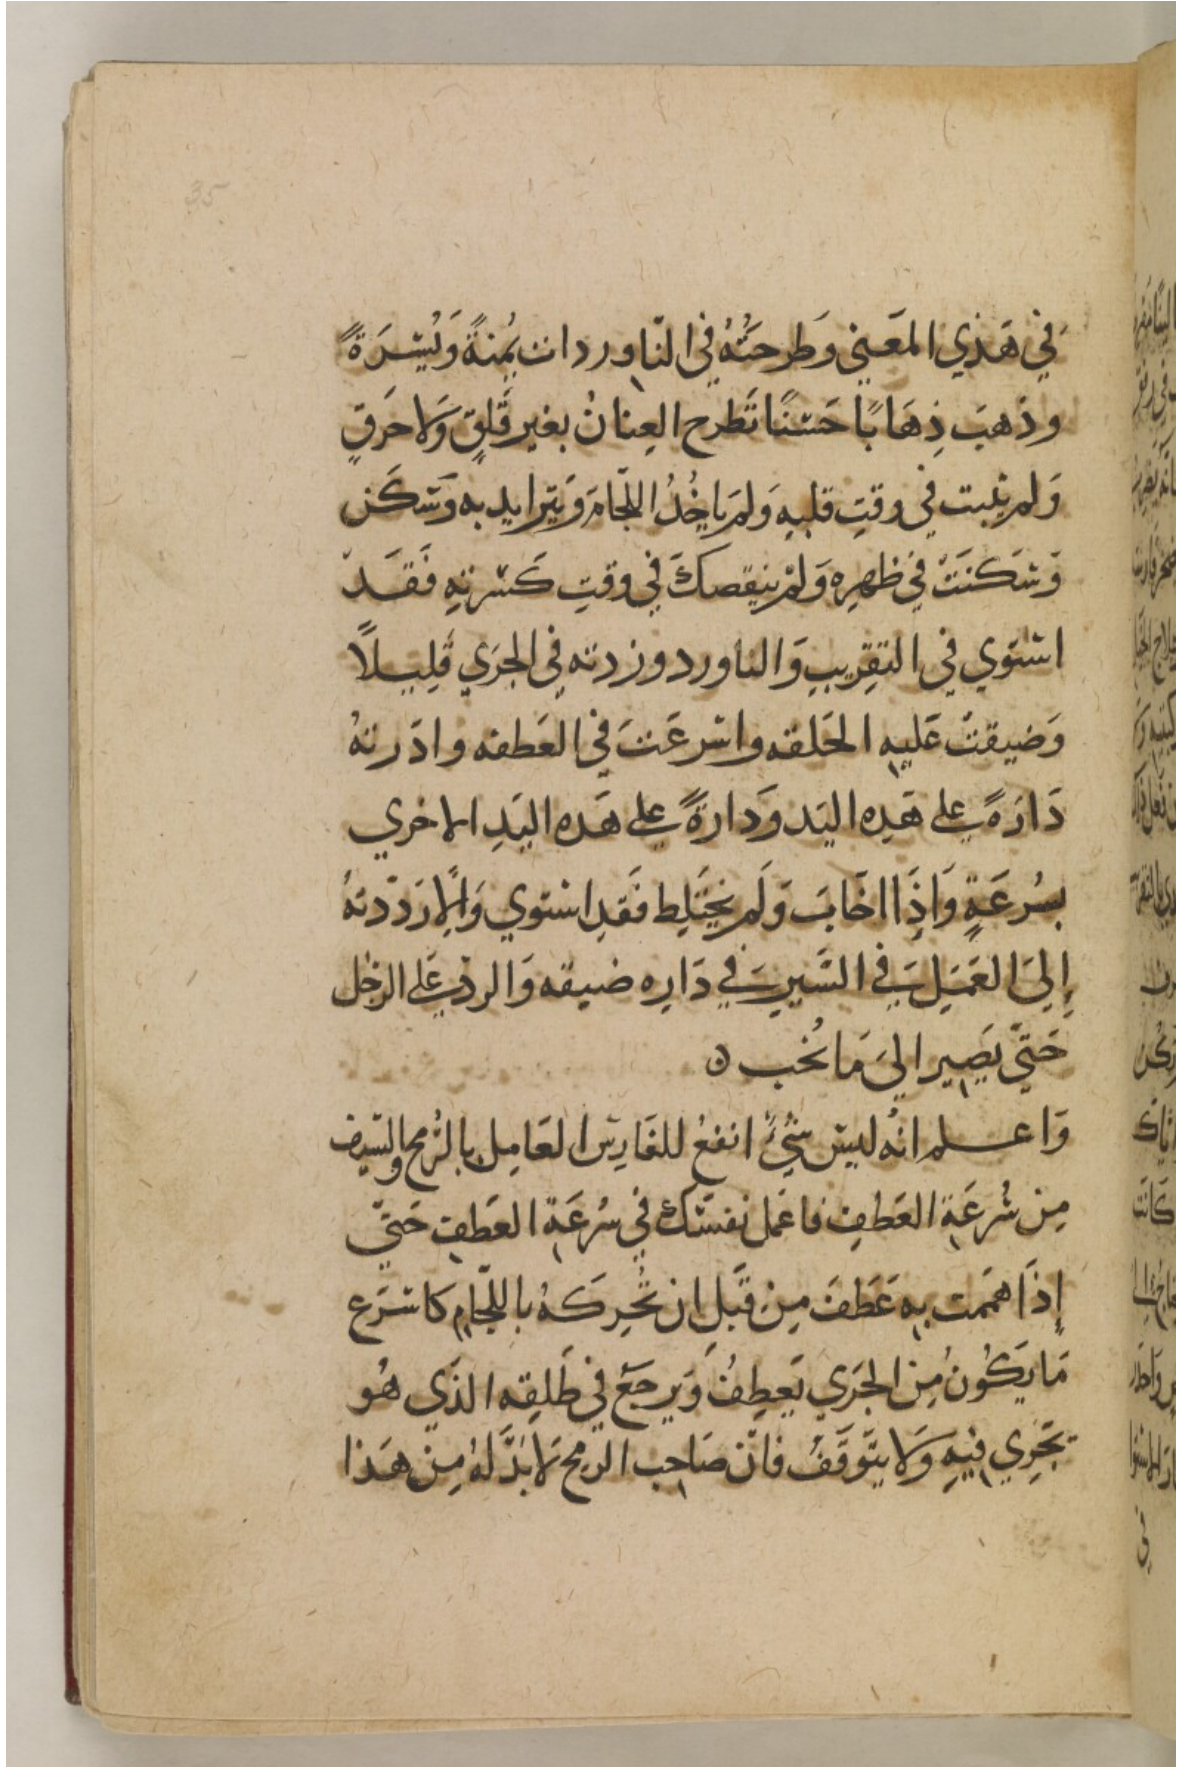 35
في هَذي المعَني وَطرحتُهُ في النّاوردات يُمنةً وَيُسْرَةً
وذهبَ ذِهَابًا حَسْنًا تَطرح العِنانُ بغير قَلقٍ وَلا خَرَقٍ
وَلم يثبت في وقتِ قلبهِ وَلمَ ياخُذُ اللّجامَ وَيتزايد به وَسَكَن
وَسَكنَتْ في ظهرِه وَلمْ ينقصكَ في وقتِ كَسْرتهِ فَقَدْ
استَوي في التقرِيبِ وَالناورد وزدته في الجرَي قَلِيلاً
وَضيقتْ عَليهِ الحَلقه واسْرعَتَ في العَطفه وادَرتهُ
دَارَةً علي هَذِه اليَد وَدارةً علي هَذه اليَدِ الاخري
بسُرعَةٍ وَاذَا اخَابَ وَلَم يختَلِط فَقدِ استوي وَاِلّا رَدّدتهُ
إليَ العَمَلِ في السَّيرِ في دَارِه ضيقه وَالردّ علَي الرجْل
حَتيّ يَصِير اليَ مَا تُحب ٥
وَاعلم انهُ ليسَ شيْءٌ انفعُ للفَارِسِ العَامِلِ بالرُمح والسّيف
مِن سُرعَةِ العَطفِ فاعمَل نفسَكَ في سُرعَةِ العَطفِ حَتيّ
إذَا هَممت بِه عَطَفَ مِن قَبلِ ان تُحرِكَهُ باللّجامِ كاسْرَع
مَا يَكُونُ مِن الجرَي يَعطِفُ وَيرجَعْ في طَلقِه الذّي هُو
يَجَرِي فيهِ وَلا يتَوقَّفُ فانّ صَاحب الرمح لَا بُدَّ لَهُ مِن هَذا